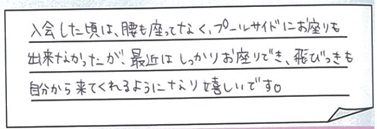 入会した頃は、腰も座ってなく、プールサイドにお座りも
出来なかったが、最近はしっかりお座りでき、飛びつきも
自分から来てくれるようになり嬉しいです。